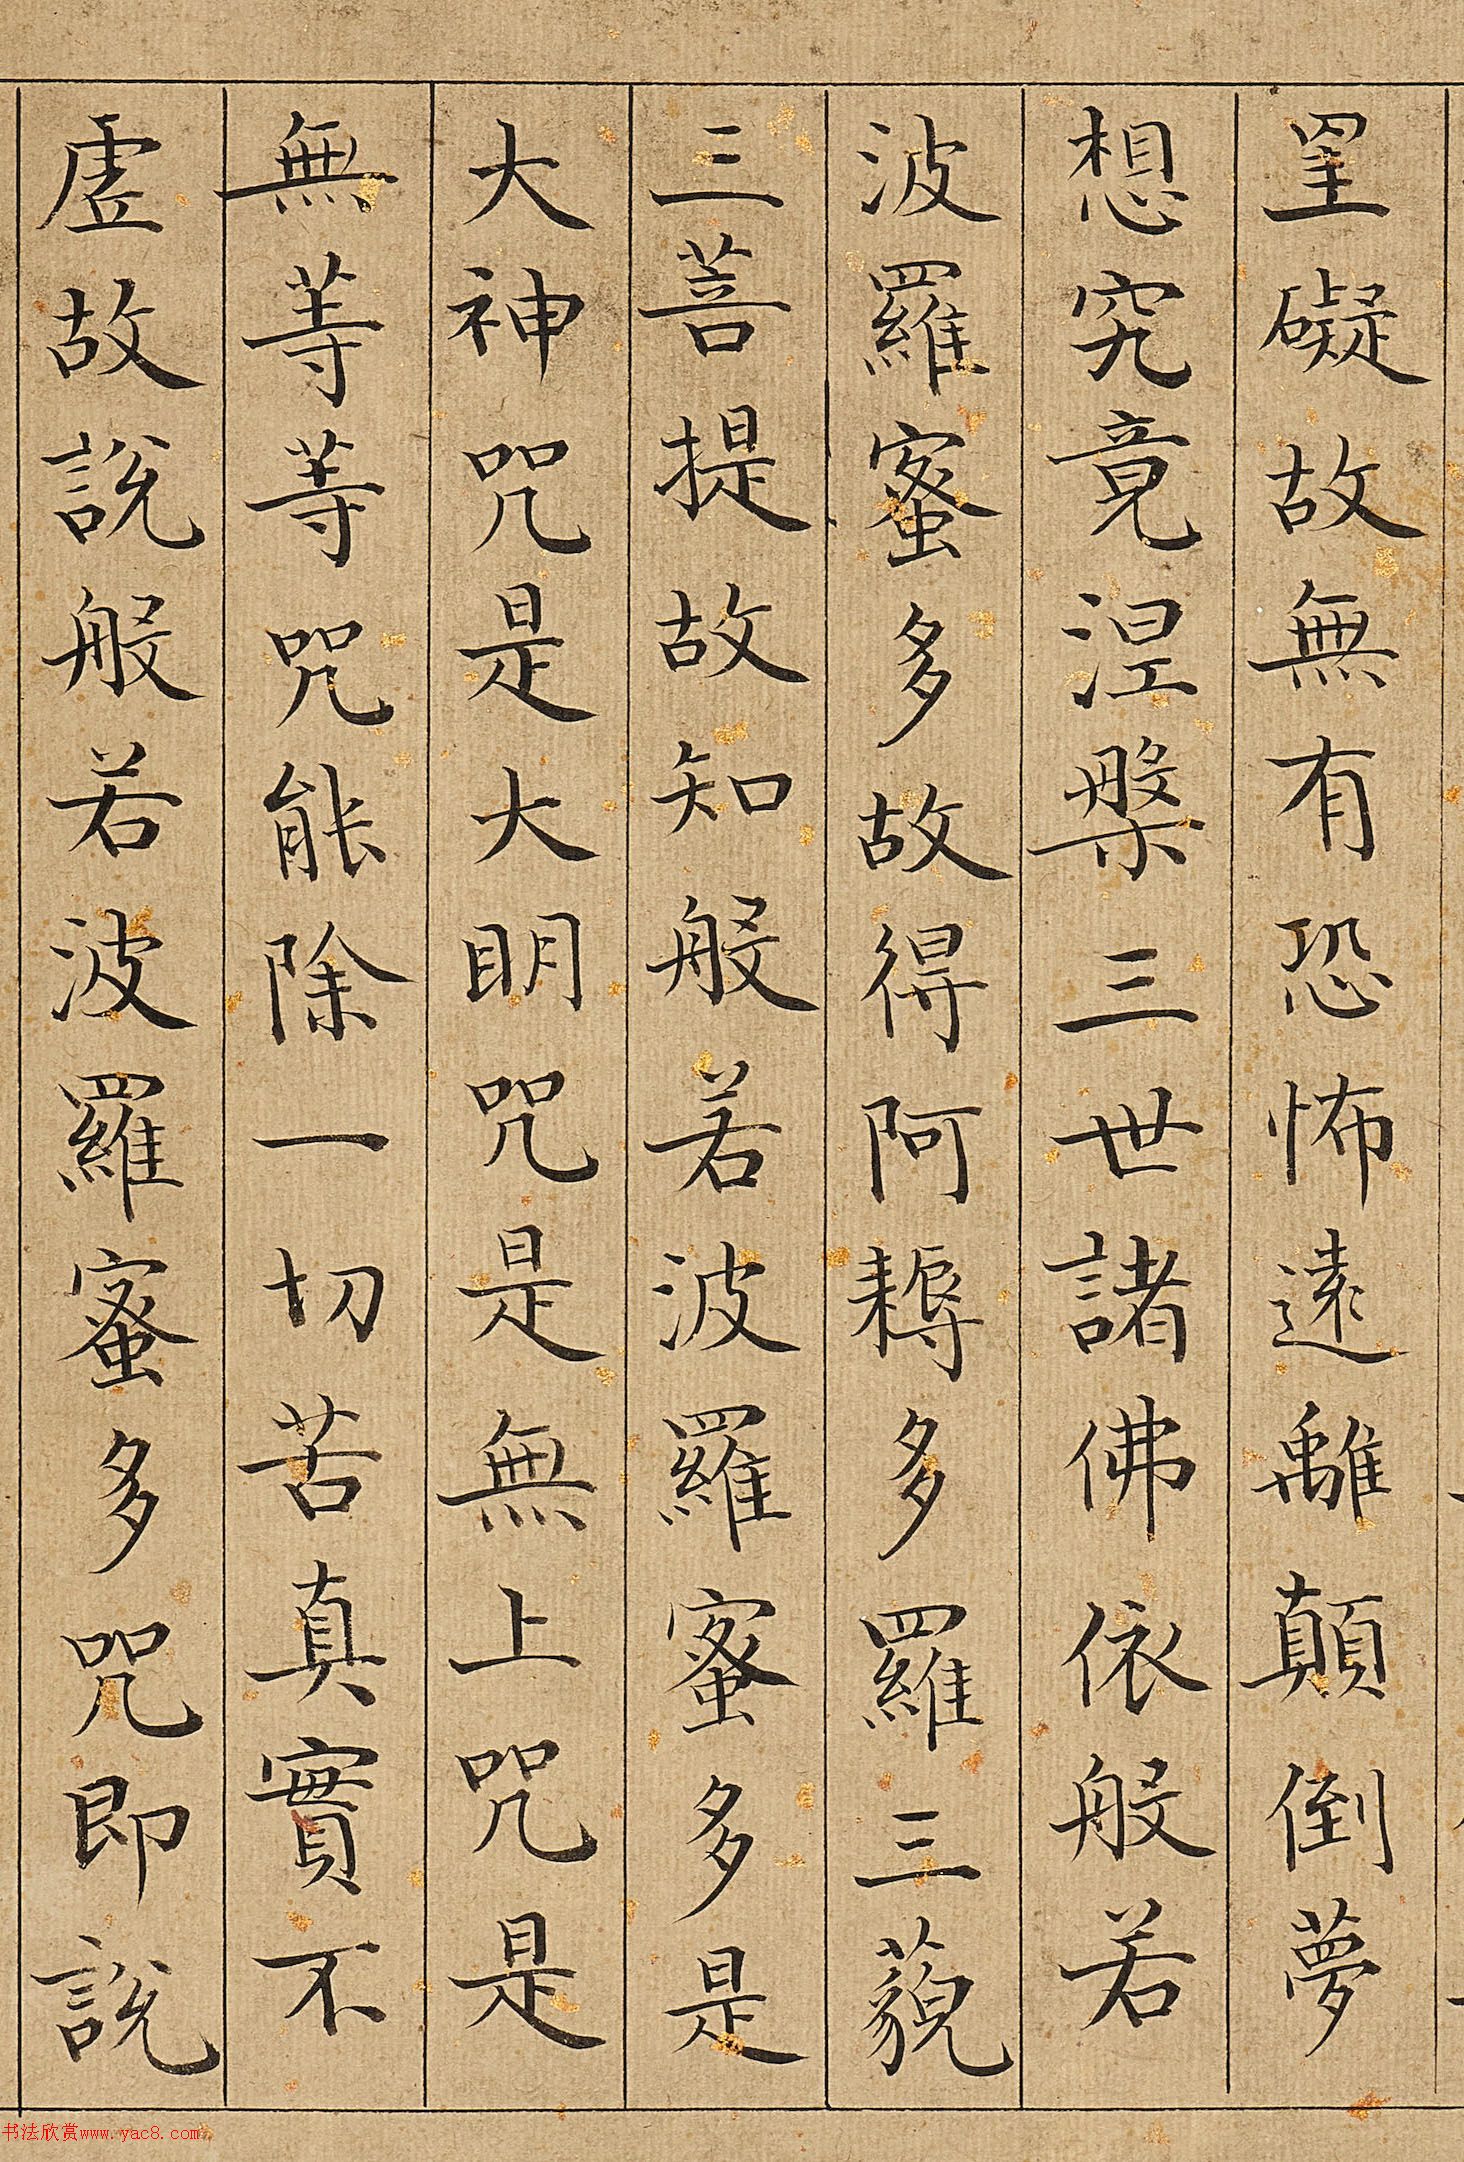 罣礙故無有恐怖遠離顛倒夢
想究竟涅槃三世諸佛依般若
波羅蜜多故得阿耨多羅三藐
三菩提故知般若波羅蜜多是
大神咒是大明咒是無上咒是
無等等咒能除一切苦真實不
虛故說般若波羅蜜多咒即說
书法欣赏www.yac8.com